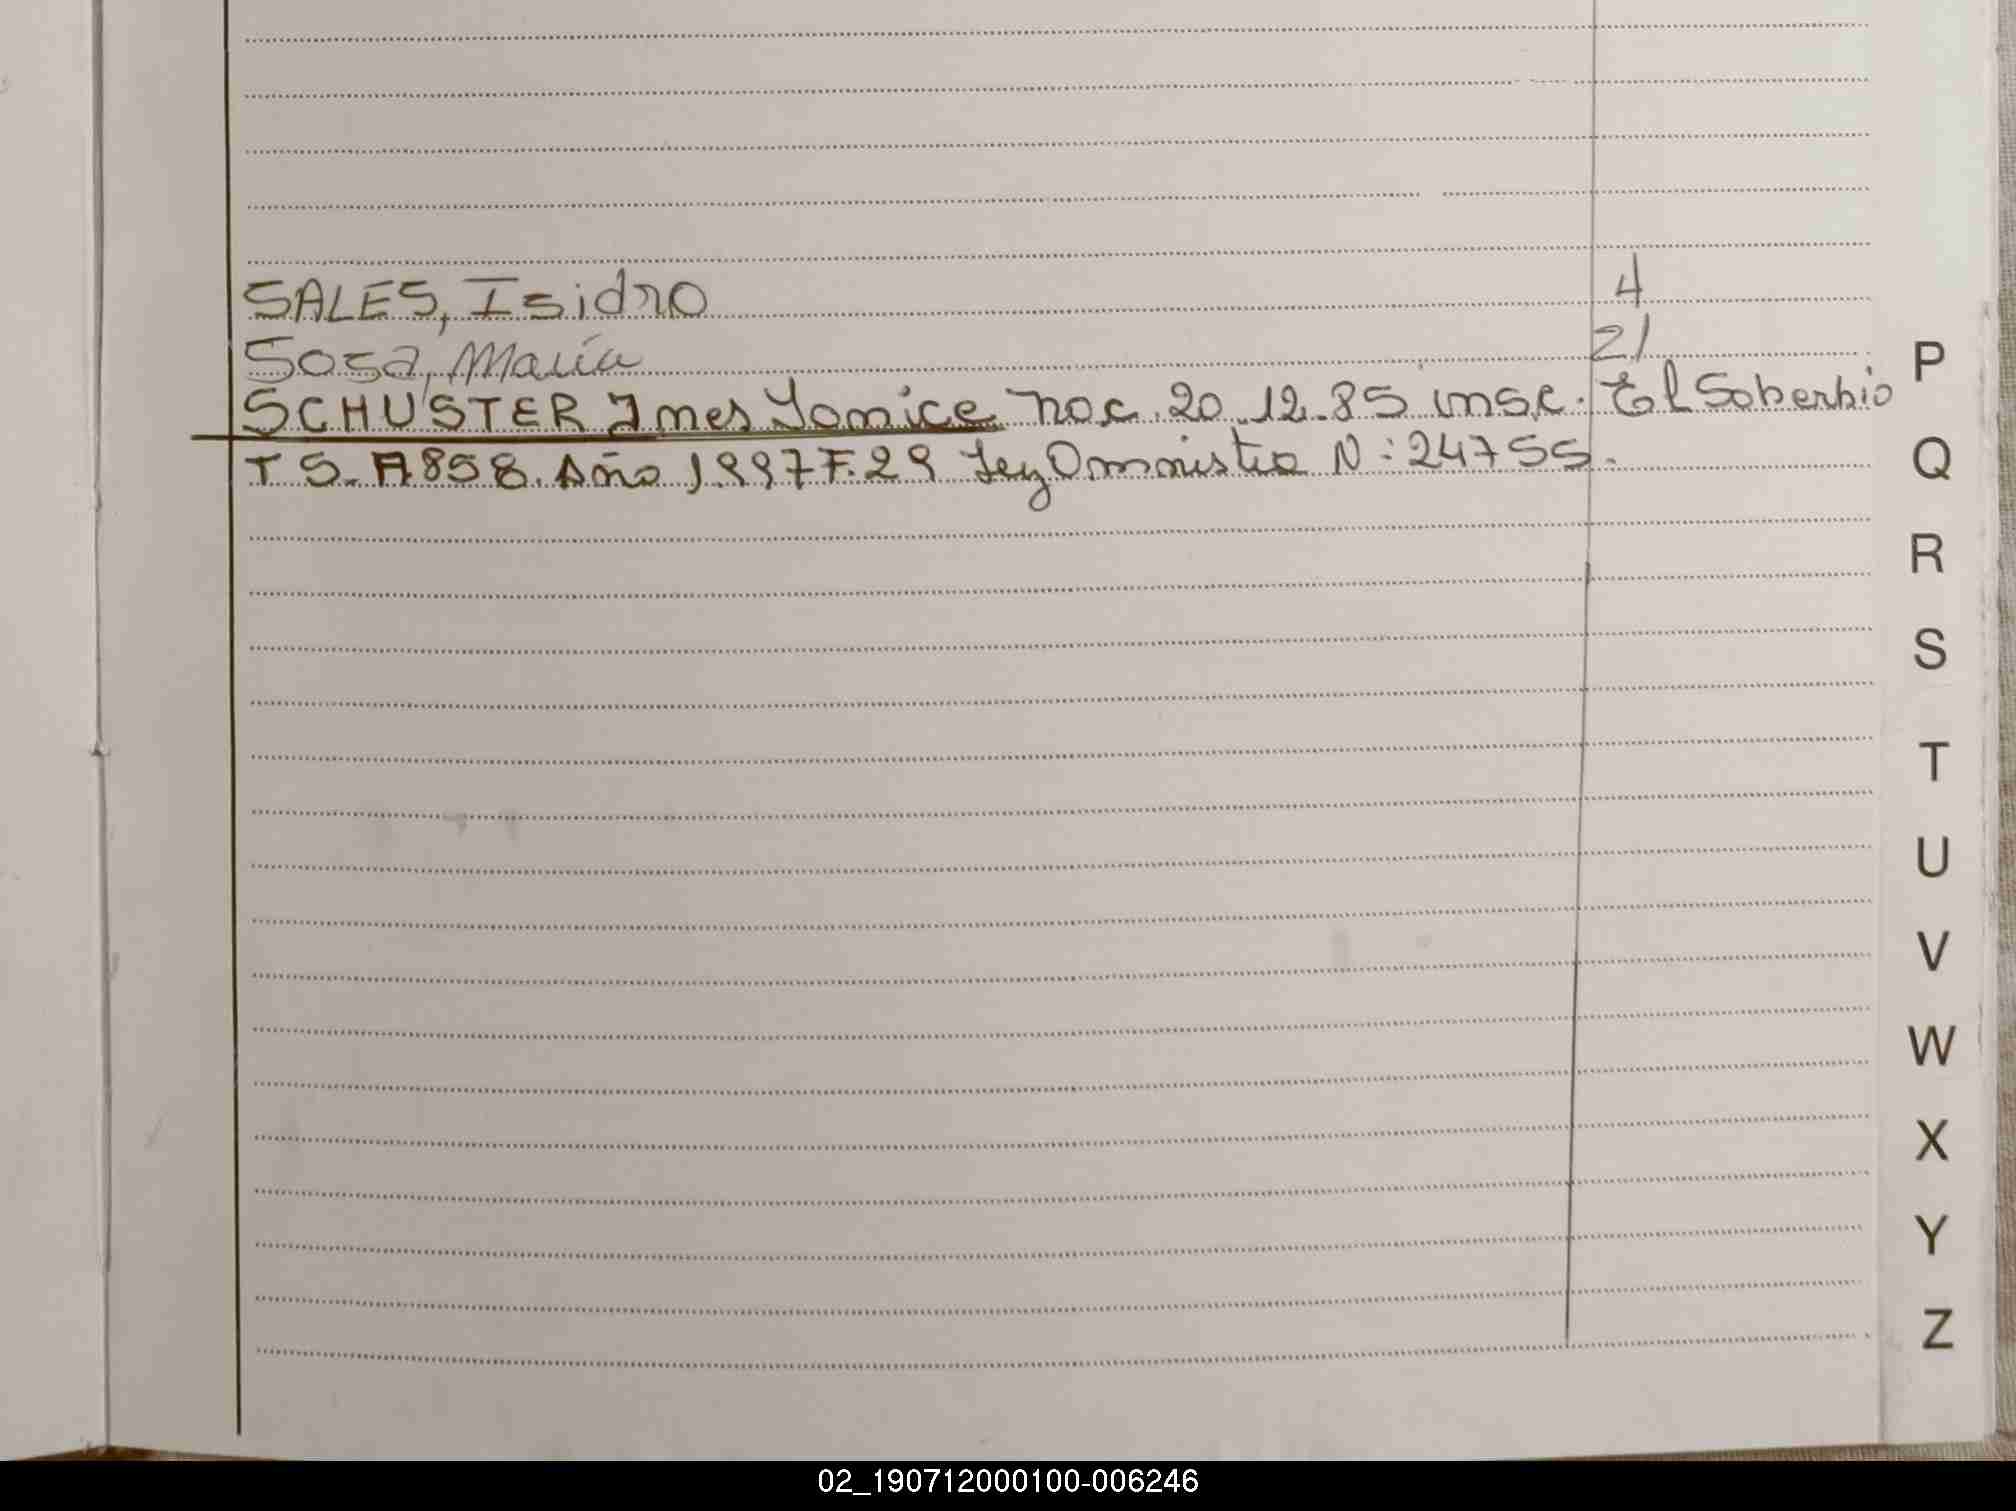 SALES, Isidro 4
Sosa, María 21
SCHUSTER Ines Yanice nac. 20.12.85 insc. El Soberbio
T S. A858. Año 1997 F.29 Ley Amnistia N: 24755.
P
Q
R
S
T
U
V
W
X
Y
Z
02_190712000100-006246